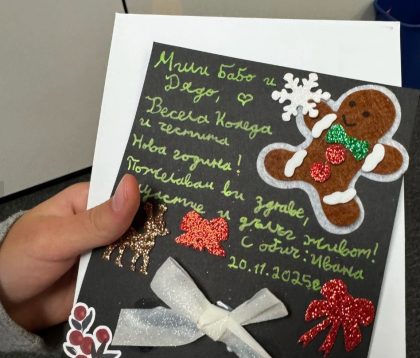 Мили Бабо и
Дядо, ♡
Весела Коледа
и честита
Нова година!
Пожелавам ви здраве,
щастие и дълъг живот!
С обич: Ивана
20.11.2025г.